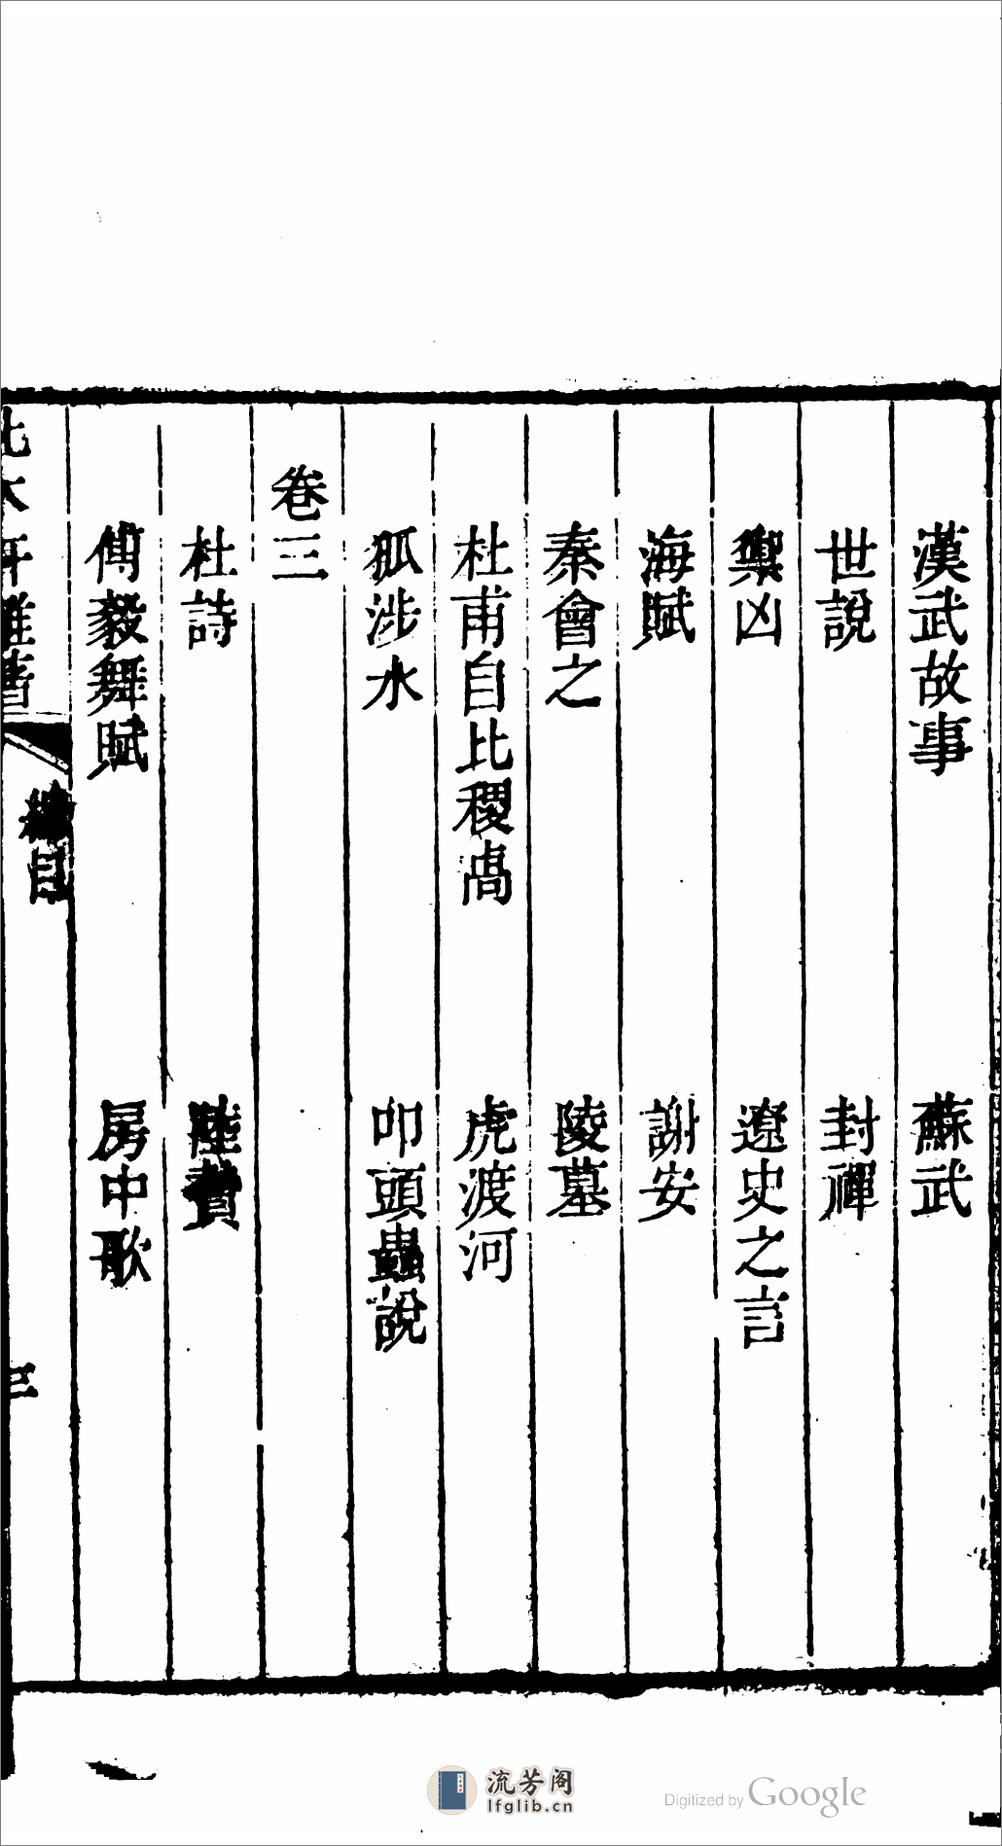 漢武故事　蘇武
世說　封禪
禦凶　遼史之言
海賦　謝安
秦會之　陵墓
杜甫自比稷卨　虎渡河
狐涉水　叩頭蟲說
卷三
杜詩　陸賈
傅毅舞賦　房中歌
此木軒雜著
總目
三
流芳阁
lfglib.cn
Digitized by Google